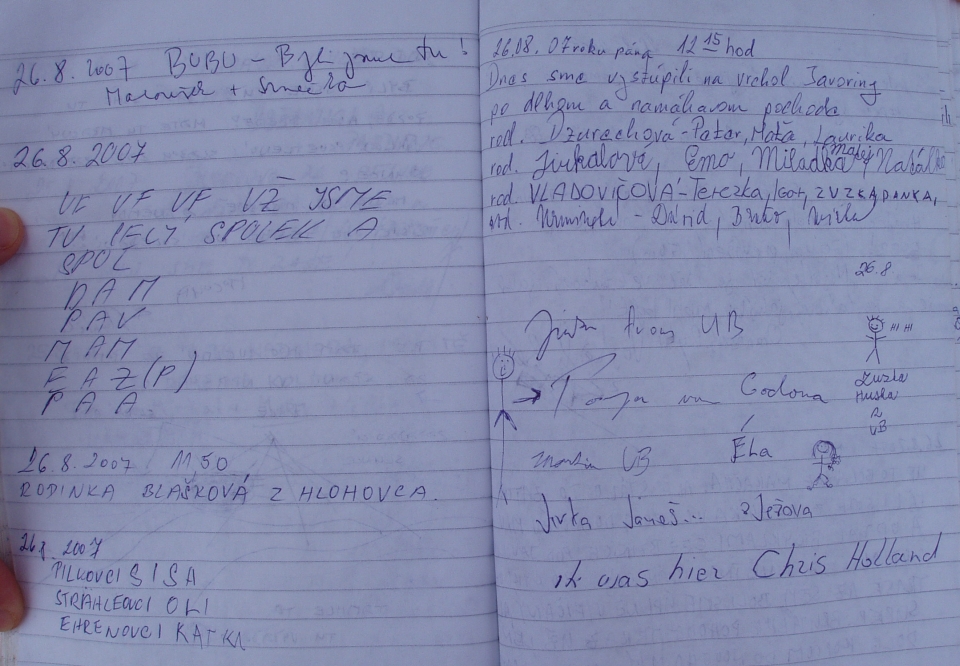 26.8.2007 BUBU - Byli jsme tu!
+
26.8.2007
UŽ JSME
TU CELÝ SPOLEK A
SPOL
DAM
PAV
MAM
EAZ(P)
PAA
26.8.2007 11,50
RODINKA BLAŠKOVÁ Z HLOHOVCA.
26.8. 2007
PILKOVCI SISA
STRÄHLEOVCI OLI
EHRENOVCI KATKA
26.08.07 roku pána 12 15 hod
Dnes sme vystúpili na vrchol Javoriny
po dlhom a namáhavom pochode
rod. Vzurechová - Peter, Maťa, Laurika
rod. Jurkalová, Emo, Miladka, Matej,
rod. VLADOVIČOVÁ - Terezka, Igor, ZUZKA, DANKA,
rod. - Dávid,
26.8
UB
HI HI
Zuzka
Huska
z
UB
Godona
Martin UB Ela
Jirka Janeš... z Ježova
ik was hier Chris Holland